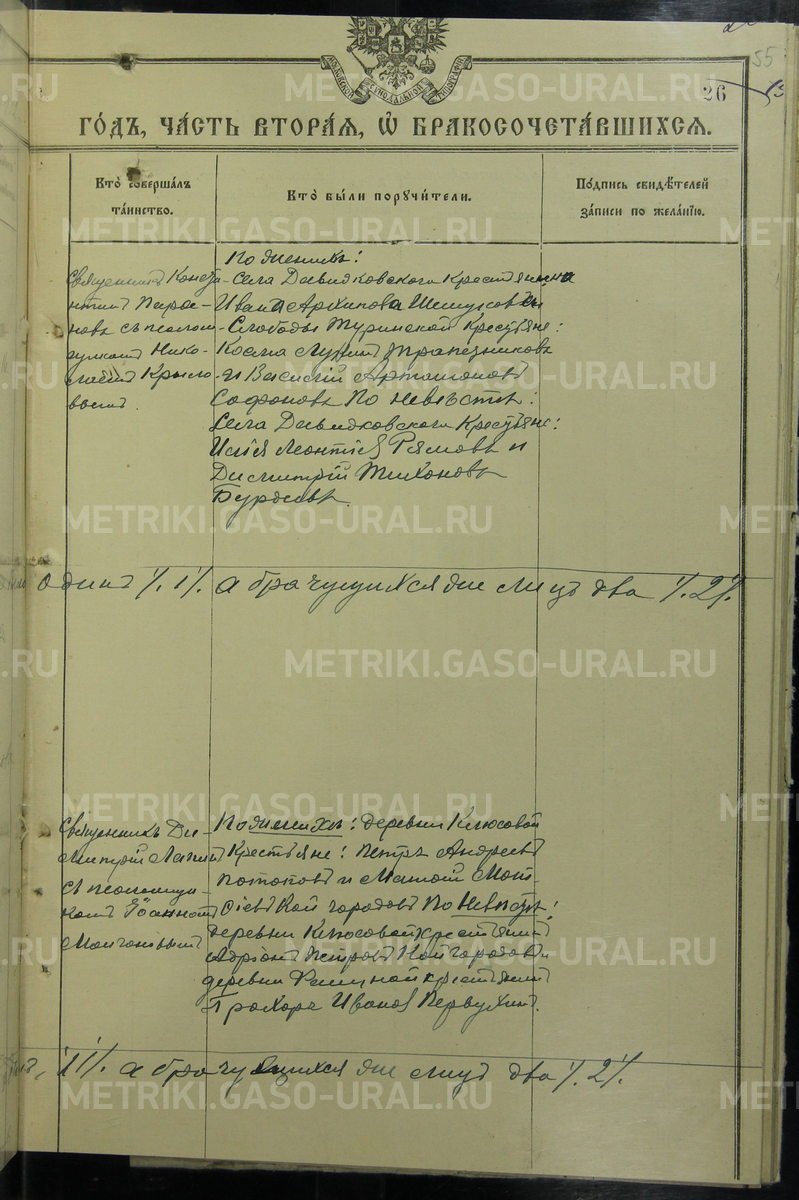 МОСКОВСКОЙ СѴНОДАЛЬНОЙ ТИПОГРАФІИ
55
26
ГО́ДЪ, ЧА́СТЬ ВТОРА́Ѧ, Ѽ БРАКОСОЧЕТА́ВШИХСѦ.
Кто̀ соверша́лъ
та́инство.
Кто̀ бы́ли порꙋчи́тели.
По́дпись свидѣ́телей
за́писи по жела́нїю.
Священникъ Конста-
нтинъ Паро-
новъ съ псалом-
щикомъ Нико-
лаемъ Крыло-
вымъ.
По женихѣ:
Села Давыдковскаго Крестьянина
Ивана Архипова
Слободы Туринской Крестьяне:
Косма Трапезниковъ
и Василій Артамоновъ
Софоновъ По невѣстѣ:
Села Давыдковскаго Крестьяне:
Илія Леонтіевъ Рямовъ и
Димитрій Тихоновъ
Бурдовъ.
одинъ /.1/. а брачущихся же лицъ два /.2/.
Священникъ Ди-
митрій Лапинъ
съ псаломщи-
комъ Іоанномъ
По женихѣ: деревни Клюсовой
Крестьяне: Петръ Андреевъ
Потоповъ и
Койгородовъ По Невѣстѣ:
деревни Клюсовой крестьянинъ
Адріанъ Петровъ Койгородовъ и
деревни крестьянинъ
Прохоръ Ивановъ Первухинъ.
/1/. а брачущихся же лицъ два /.2/.
METRIKI.GASO-URAL.RU